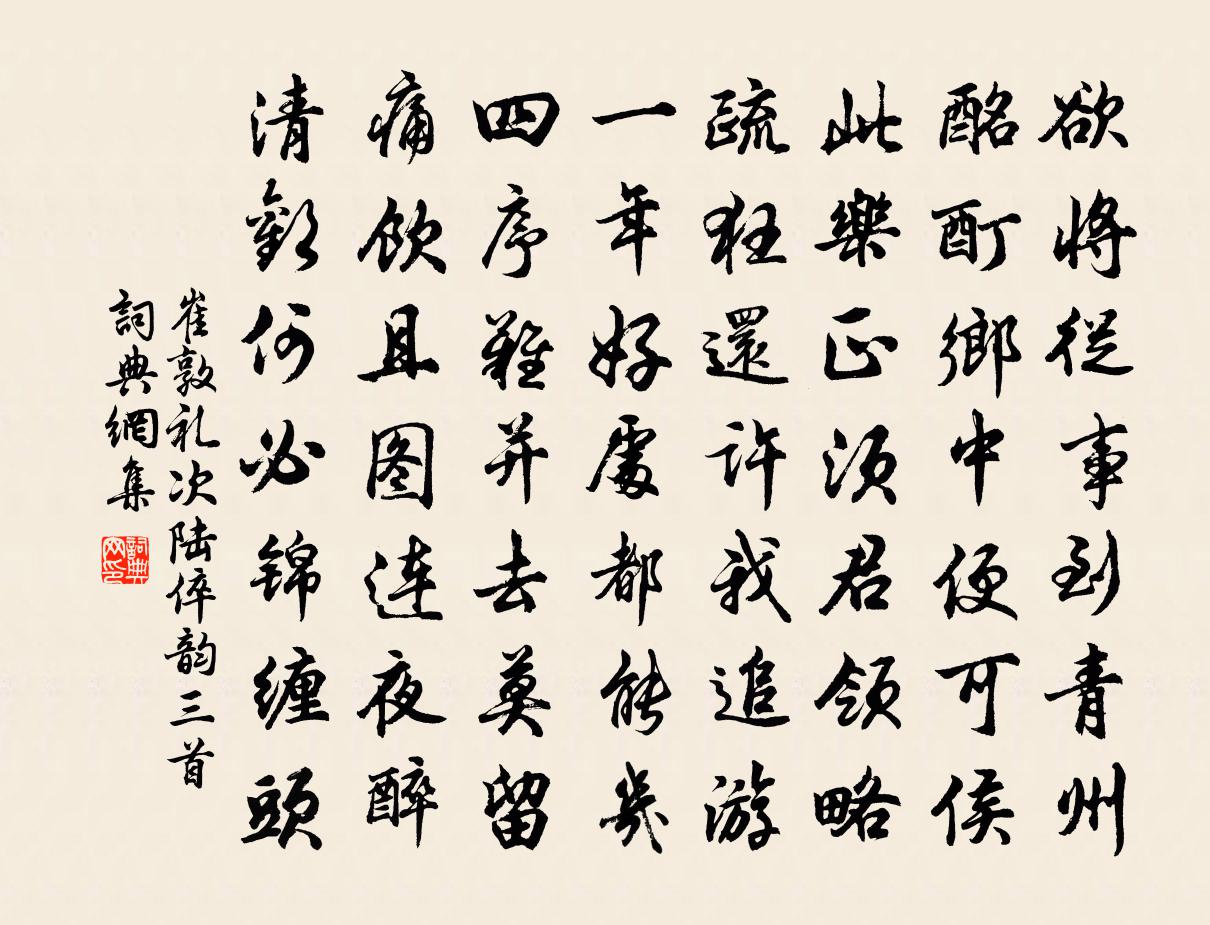 欲將從事到青州
酩酊鄉中便可侯
此樂正須君領略
疏狂還許我追游
一年好處都能幾
四序難并去莫留
痛飲且图連夜醉
清歡何必锦缠頭
崔敦礼次陆倅韵三首
詞典網集
詞典网印